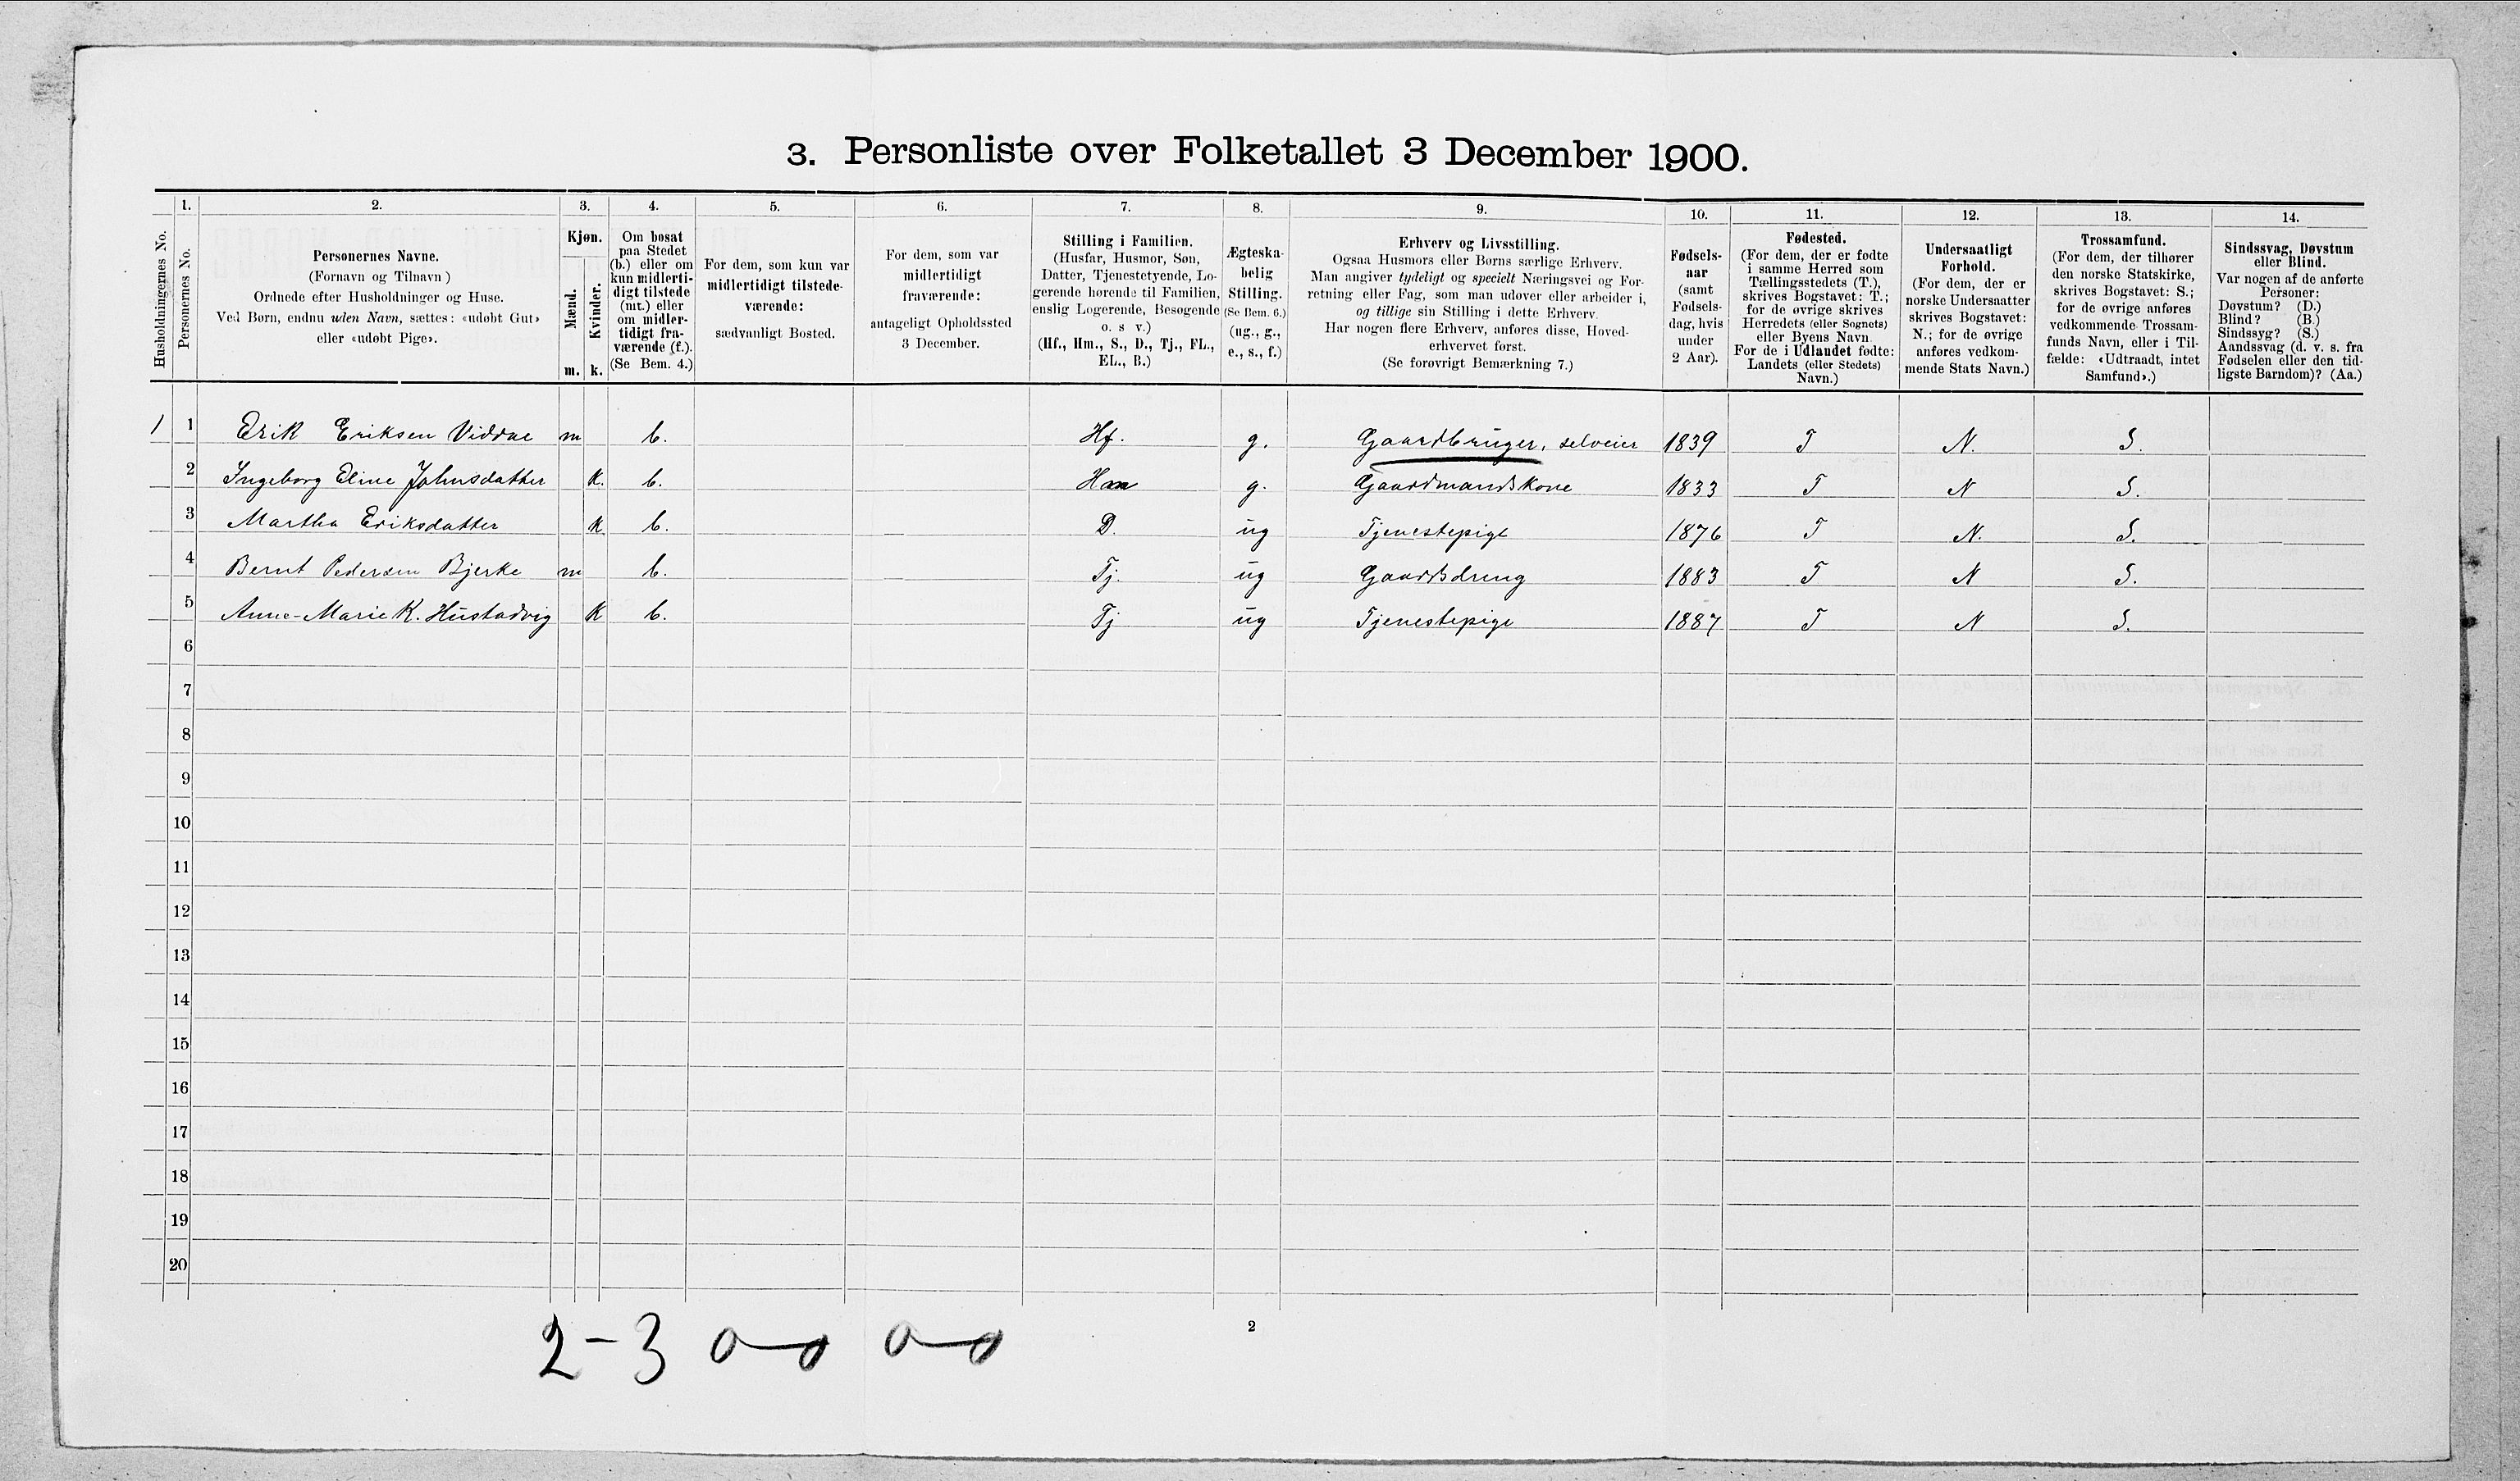 3. Personliste over Folketallet 3 December 1900.
1. 2. 3. 4. 5. 6. 7. 8. 9. 10. 11. 12. 13. 14.
Husholdningernes No.
Personernes No.
Personernes Navne.
(Fornavn og Tilnavn )
Ordnede efter Husholdninger og Huse.
Ved Børn, endnu uden Navn, sættes: «udøbt Gut»
eller «udøbt Pige».
Kjøn.
Mænd.
Kvinder.
m. k.
Om bosat
paa Stedet
(b.) eller om
kun midlerti-
digt tilstede
(mt.) eller
om midler-
tidigt fra-
værende (f.).
(Se Bem. 4.)
For dem, som kun var
midlertidigt tilstede-
værende:
sædvanligt Bosted.
For dem, som var
midlertidigt
fraværende:
antageligt Opholdssted
3 December.
Stilling i Familien.
(Husfar, Husmor, Søn,
Datter, Tjenestetyende, Lo-
gerende hørende til Familien,
enslig Logerende, Besøgende
o. s v.)
(Hf., Hm., S., D., Tj., FL.,
EL., B.)
Ægteska-
belig
Stilling.
(Se Bem. 6.)
(ug., g.,
e., s., f.)
Erhverv og Livsstilling.
Ogsaa Husmors eller Børns særlige Erhverv.
Man angiver tydeligt og specielt Næringsvei og For-
retning eller Fag, som man udøver eller arbeider i,
og tillige sin Stilling i dette Erhverv.
Har nogen flere Erhverv, anføres disse, Hoved-
erhvervet først.
(Se forøvrigt Bemærkning 7.)
Fødsels-
aar
(samt
Fødsels-
dag, hvis
under
2 Aar).
Fødested.
(For dem, der er fødte
i samme Herred som
Tællingsstedets (T.),
skrives Bogstavet: T.;
for de øvrige skrives
Herredets (eller Sognets)
eller Byens Navn.
For de i Udlandet fødte:
Landets (eller Stedets)
Navn.)
Undersaatligt
Forhold.
(For dem, der er
norske Undersaatter
skrives Bogstavet:
N.; for de øvrige
anføres vedkom-
mende Stats Navn.)
Trossamfund.
(For dem, der tilhører
den norske Statskirke,
skrives Bogstavet: S.;
for de øvrige anføres
vedkommende Trossam-
funds Navn, eller i Til-
fælde: «Udtraadt, intet
Samfund».)
Sindssvag, Døvstum
eller Blind.
Var nogen af de anførte
Personer:
Døvstum? (D.)
Blind? (B.)
Sindssyg? (S.)
Aandssvag (d. v. s. fra
Fødselen eller den tid-
ligste Barndom)? (Aa.)
1 1 Erik Eriksen Viddae m b. Hf. g. Gaardbruger, selveier 1839 T N. S.
2 Ingeborg Eline Johnsdatter k. b. Hm g. Gaardmandskone 1833 T N S.
3 Martha Eriksdatter k b. D. ug Tjenestepige 1876 T N. S.
4 Bernt Pedersen Bjerke m b. Tj. ug Gaardsdreng 1883 T N S.
5 Anne-Marie K. Hustadvig k b. Tj ug Tjenestepige 1887 T N S.
6
7
8
9
10
11
12
13
14
15
16
17
18
19
20
2
2-3 0-0 0-0